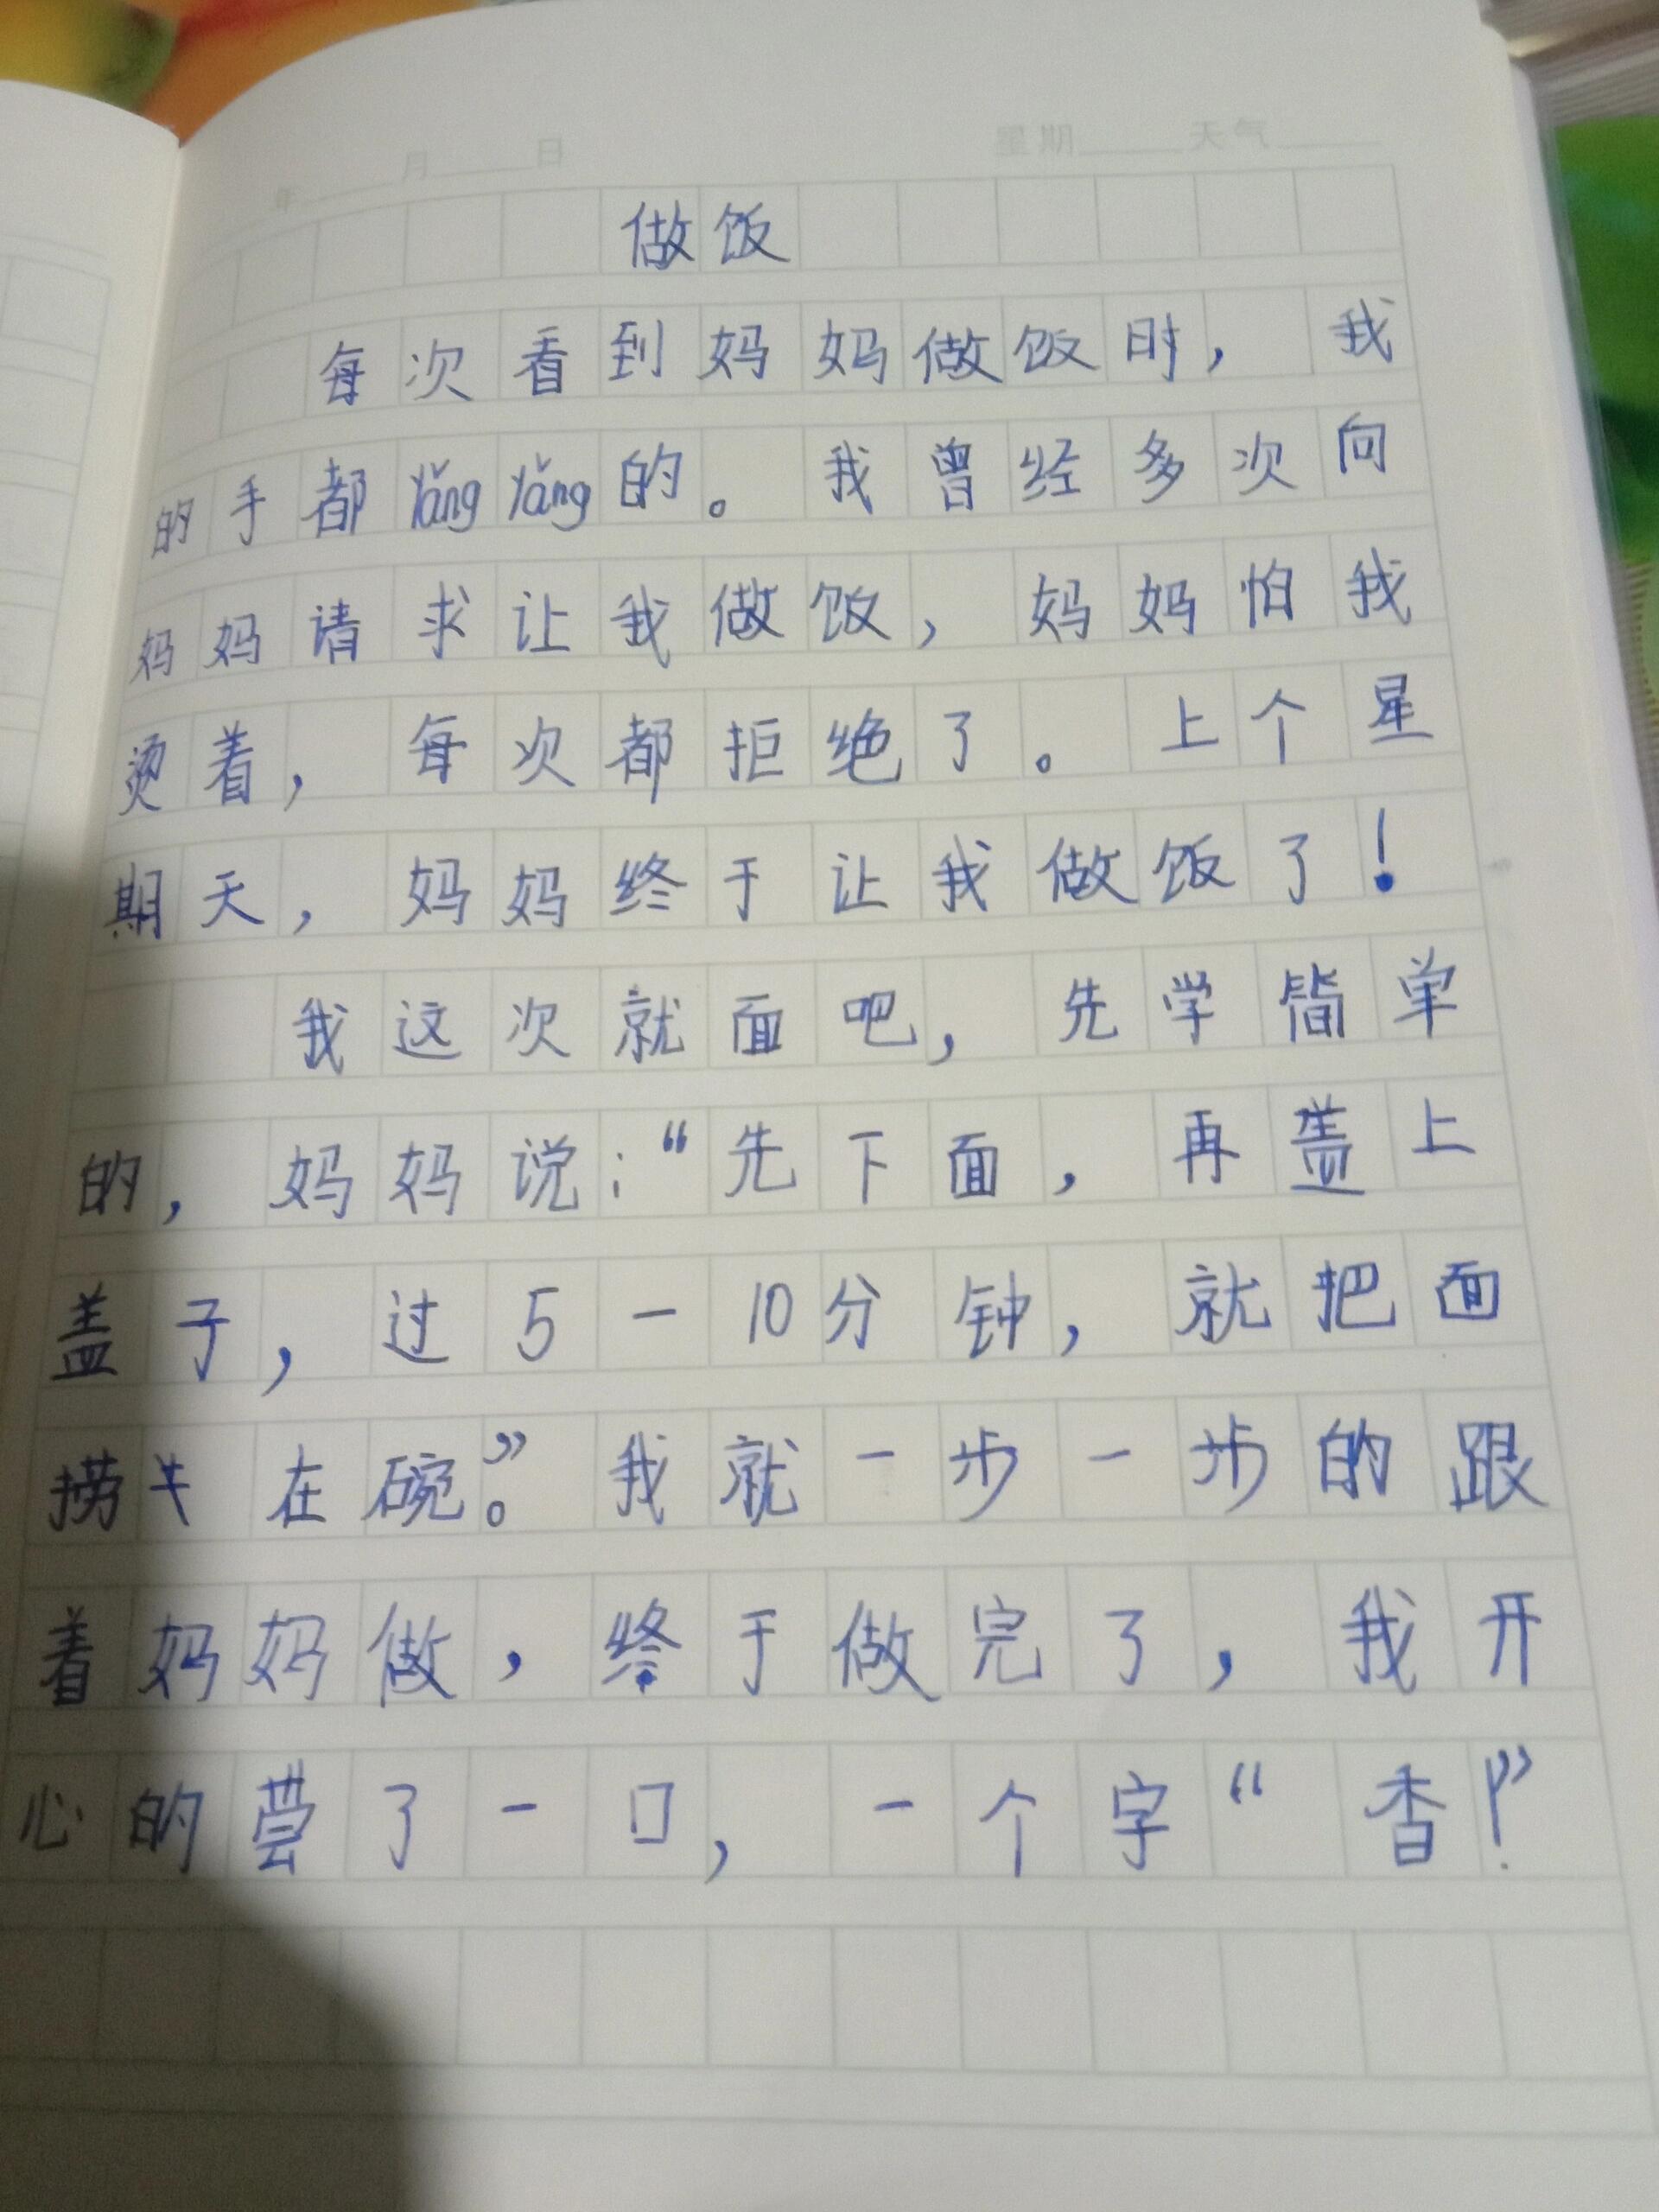 月 日 星期 天气
做饭
每次看到妈妈做饭时，我
的手都yǎngyǎng的。我曾经多次向
妈妈请求让我做饭，妈妈怕我
烫着，每次都拒绝了。上个星
期天，妈妈终于让我做饭了！
我这次就面吧，先学简单
的，妈妈说：“先下面，再盖上
盖子，过5－10分钟，就把面
捞在碗。”我就一步一步的跟
着妈妈做，终于做完了，我开
心的了一口，一个字“香！”